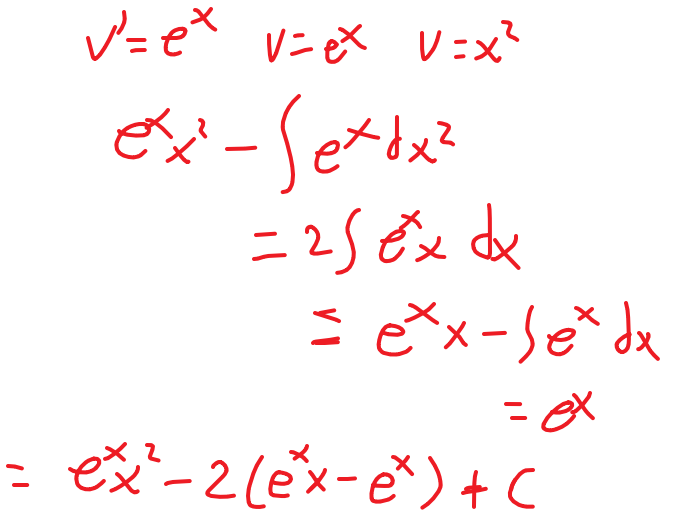 v'=e^x v=e^x v=x^2
e^x x^2 - ∫ e^x dx^2
= 2∫ e^x x dx
= e^x x - ∫ e^x dx
= e^x
= e^x x^2 - 2(e^x x - e^x) + C